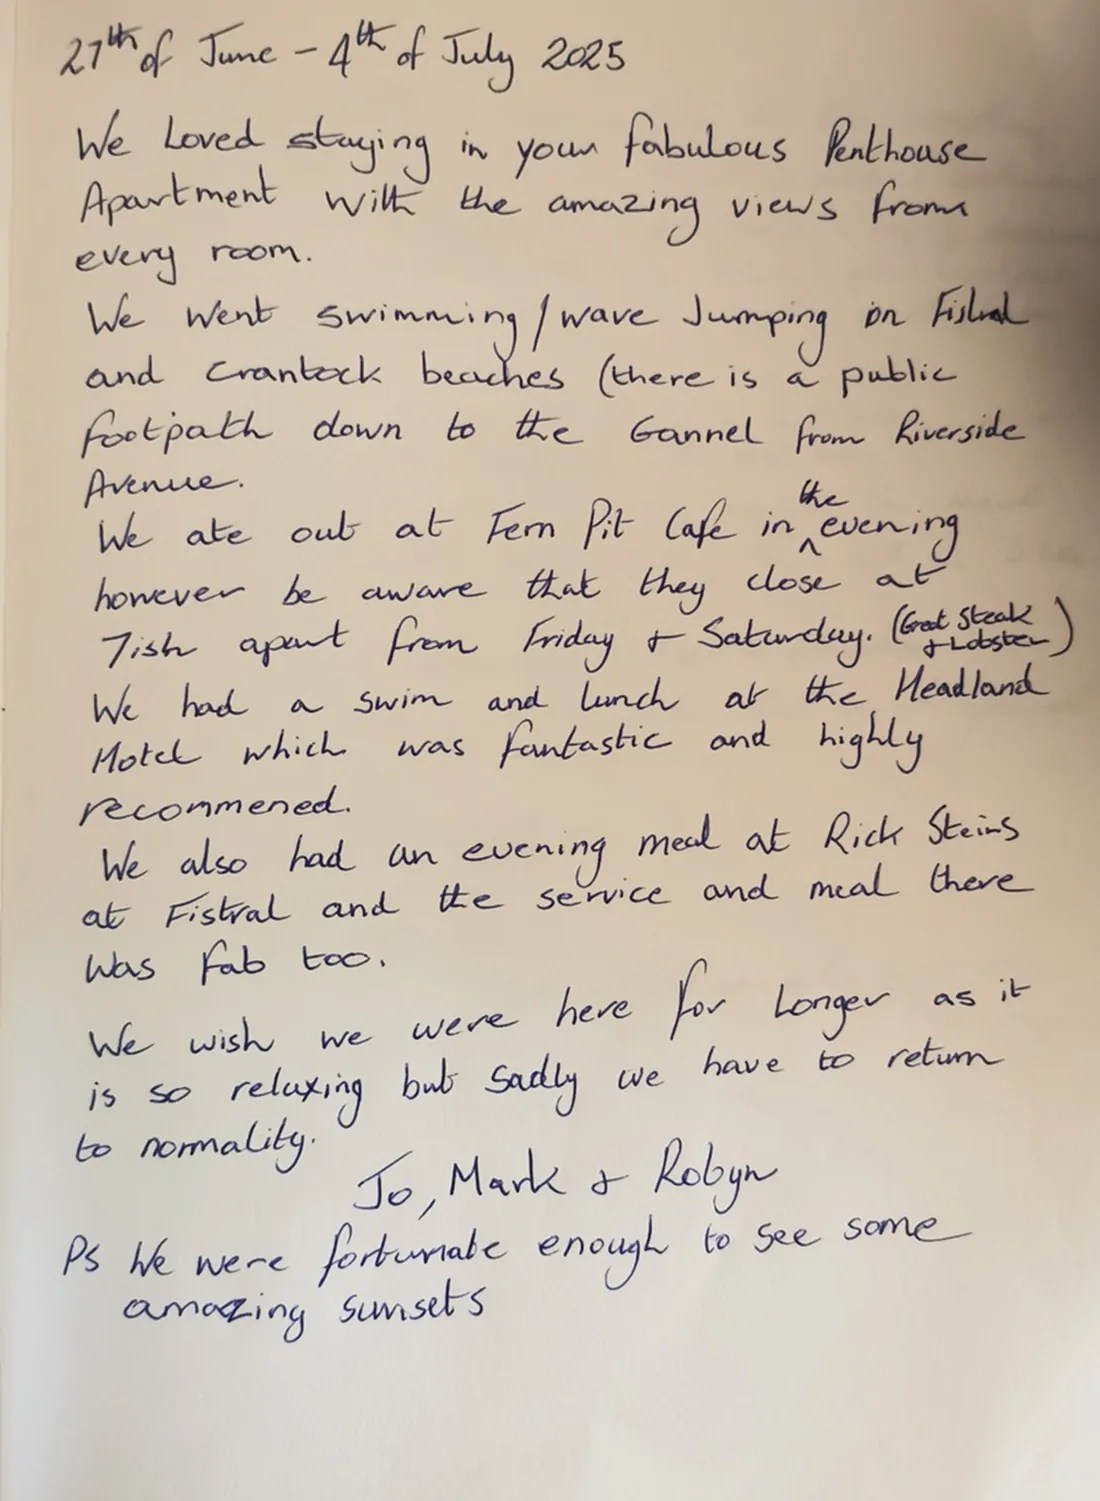 27th of June - 4th of July 2025
We Loved staying in your fabulous Penthouse
Apartment with the amazing views from
every room.
We went swimming/wave Jumping on Fistral
and Crantock beaches (there is a public
footpath down to the Gannel from Riverside
Avenue.
We ate out at Fern Pit Cafe in ^the evening
however be aware that they close at
7ish apart from Friday + Saturday. (Great Steak
+ Lobster)
We had a swim and lunch at the Headland
Hotel which was fantastic and highly
recommened.
We also had an evening meal at Rick Steins
at Fistral and the service and meal there
was fab too.
We wish we were here for Longer as it
is so relaxing but sadly we have to return
to normality.
Jo, Mark & Robyn
Ps We were fortunate enough to see some
amazing sunsets